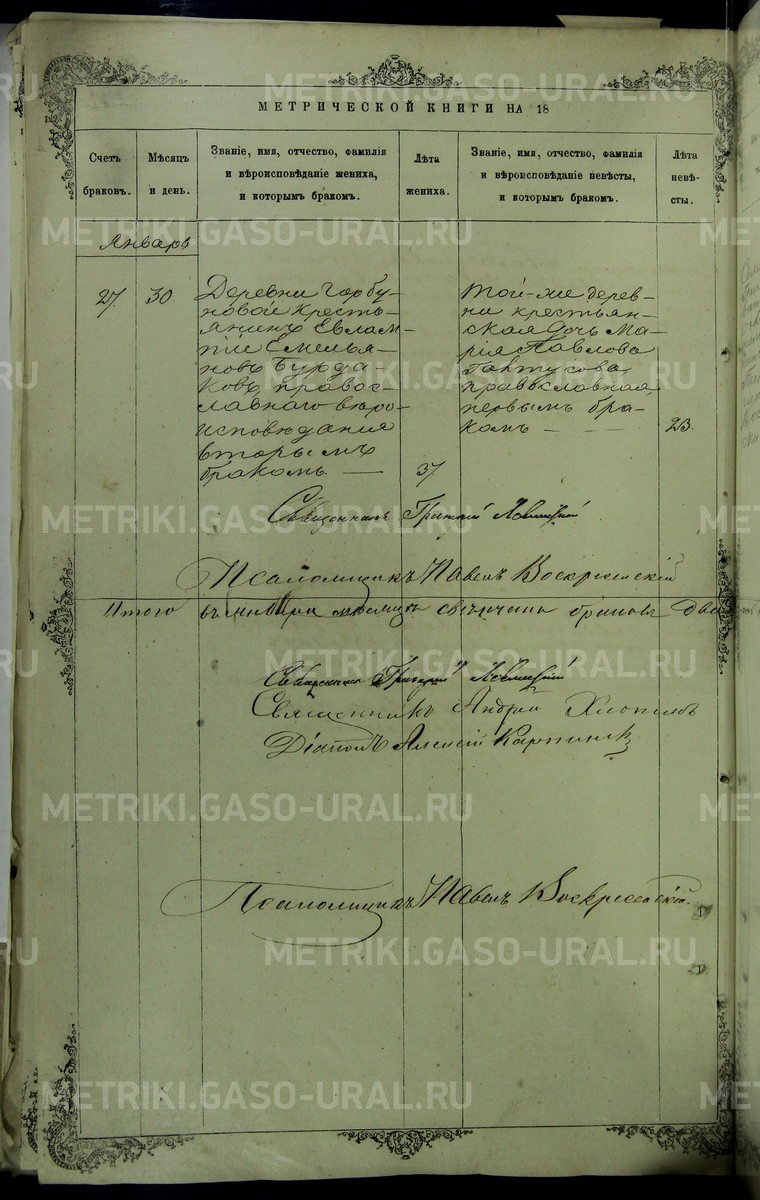 МЕТРИЧЕСКОЙ КНИГИ НА 18
Счетъ браковъ.
Мѣсяцъ и день.
Званіе, имя, отчество, фамилія
и вѣроисповѣданіе жениха,
и которымъ бракомъ.
Лѣта жениха.
Званіе, имя, отчество, фамилія
и вѣроисповѣданіе невѣсты,
и которымъ бракомъ.
Лѣта невѣ-
сты.
Январь
27
30
Деревни Горбу-
новой кресть-
янинъ Евлам-
пій Емелья-
новъ Бурда-
ковъ, правос-
лавнаго вѣро-
исповѣданія
вторымъ
бракомъ
37.
Той-же дерев-
ни крестьян-
ская дочь Ма-
рія Павлова
православная,
первымъ бра-
комъ
23.
Священникъ Григорій Левицкій
Псаломщикъ Павелъ Воскресенскій
Итого въ январѣ мѣсяцѣ свѣнчано браковъ два
Священникъ Григорій Левицкій
Священникъ Андрей
Діаконъ Алексій
Псаломщикъ Павелъ Воскресенскій
METRIKI.GASO-URAL.RU